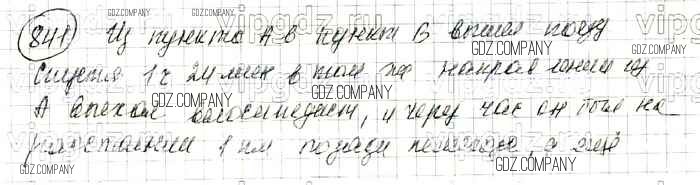 841) Из пункта А в пункт В вышел поезд
Спустя 1 ч 24 мин в том же направлении из
А выехал велосипедист, и через час он был на
расстоянии 1 км позади пешехода, а ещё
GDZ.COMPANY
GDZ.COMPANY
GDZ.COMPANY
GDZ.COMPANY
GDZ.COMPANY
GDZ.COMPANY
GDZ.COMPANY
GDZ.COMPANY